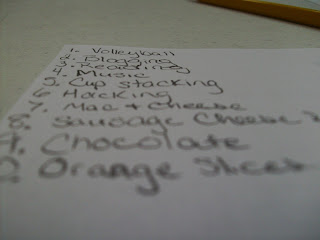 1. Volleyball
2. Blogging
3. Reading
4. Music
5. Cup stacking
6. Hacking
7. Mac + Cheese
8. Sausage Cheese
9. Chocolate
0. Orange Slices